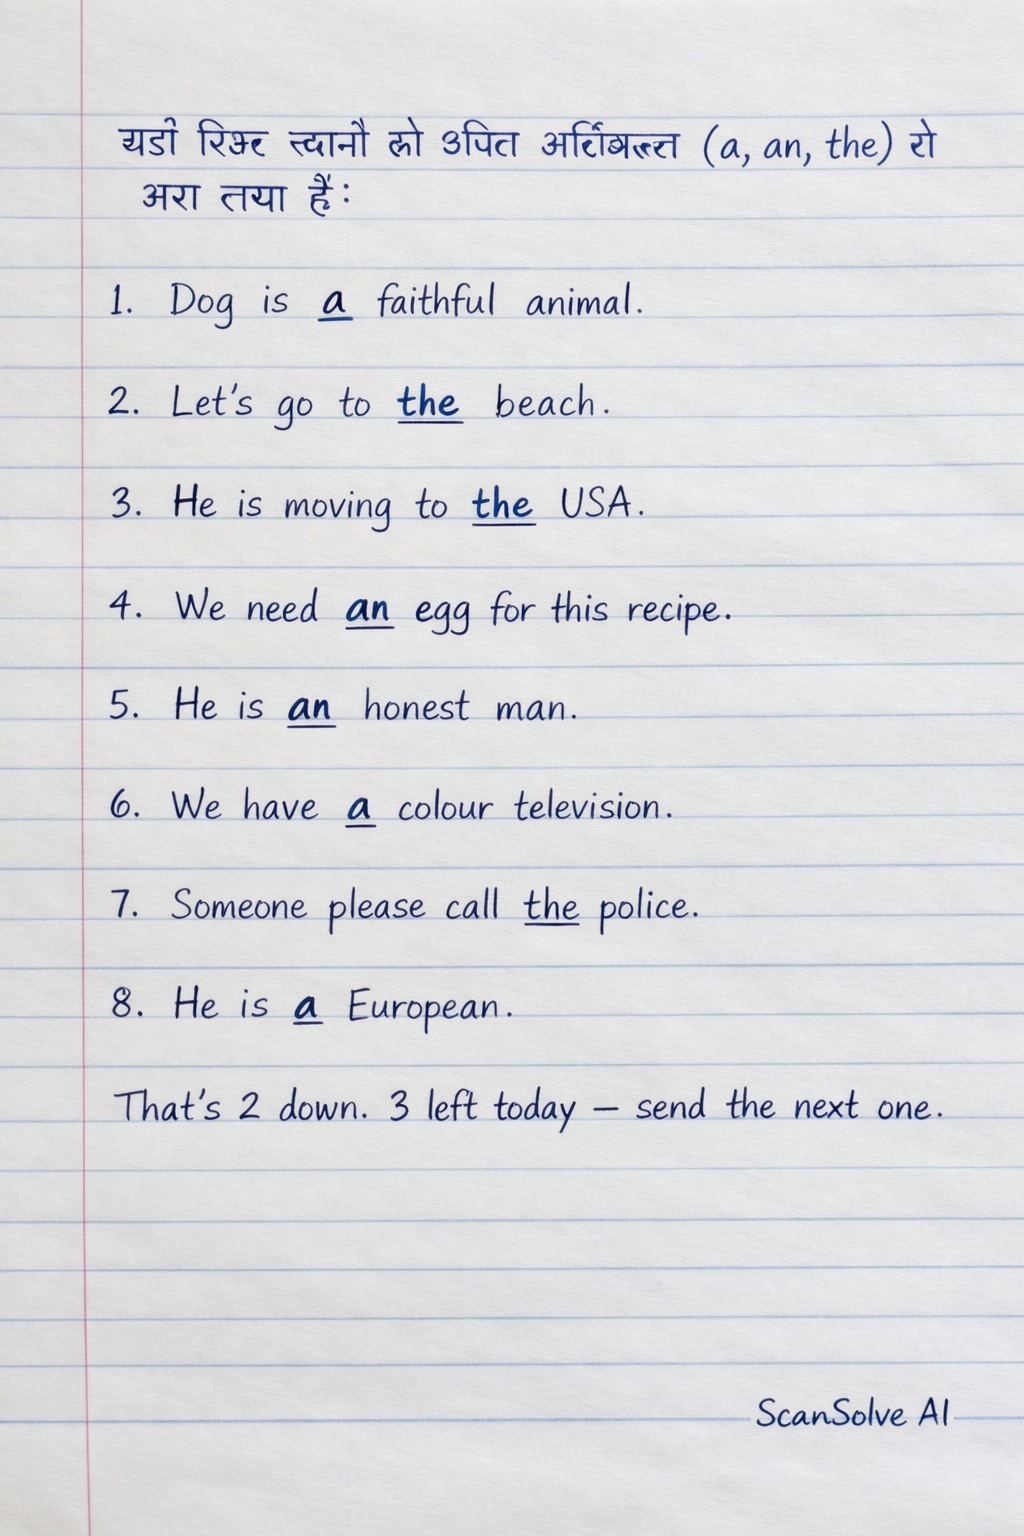 यडो रिक्ट स्थानौ को उपित (a, an, the) रो
अरा तया हैं:
1. Dog is a faithful animal.
2. Let's go to the beach.
3. He is moving to the USA.
4. We need an egg for this recipe.
5. He is an honest man.
6. We have a colour television.
7. Someone please call the police.
8. He is a European.
That's 2 down. 3 left today — send the next one.
ScanSolve AI